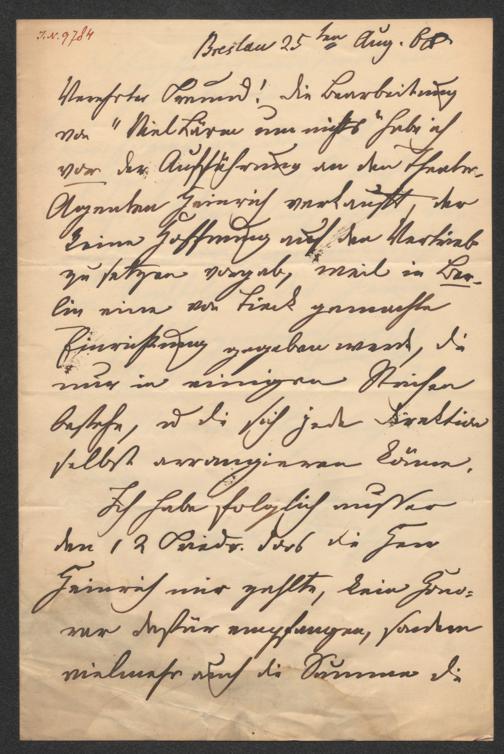 I.N. 9784
Breslau 25ten Aug. 68
Verehrter Freund! Die Bearbeitung
von "Viel Lärm um nichts" habe ich
vor der Aufführung an den Theater-
Agenten Heinrich verkauft, der
keine Hoffnung auf den Vertrieb
zu setzen vorgab, weil in Ber-
lin eine von Tieck gemachte
Einrichtung gegeben werde, die
nur in einigen Strichen
bestehe, u die sich jede Direktion
selbst arrangieren könne.
Ich habe folglich ausser
den 12 Friedr. dors die Herr
Heinrich mir zahlte, kein Hono-
rar dafür empfangen, sondern
vielmehr auch die Summe die